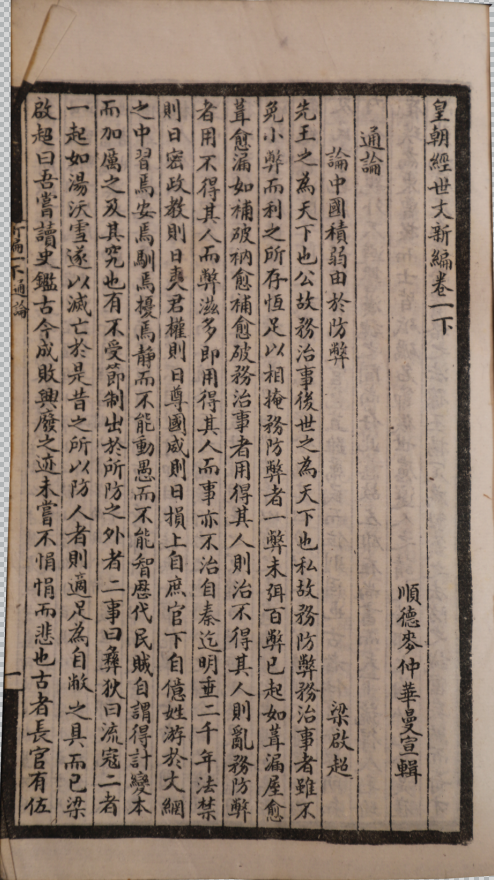 皇朝經世文新編卷一下
順德麥仲華曼宣輯
通論
論中國積弱由於防弊
梁啟超
先王之為天下也公故務治事後世之為天下也私故務防弊務治事者雖不
免小弊而利之所存恆足以相掩務防弊者一弊未弭百弊已起如葺漏屋愈
葺愈漏如補破衲愈補愈破務治事者用得其人則治不得其人則亂務防弊
者用不得其人而弊滋多即用得其人而事亦不治自秦迄明垂二千年法禁
則日密政教則日夷君權則日尊國威則日損上自庶官下自億姓游於大網
之中習焉安焉馴焉擾焉靜而不能動愚而不能智歷代民賊自謂得計變本
而加厲之及其究也有不受節制出於所防之外者二事曰彝狄曰流寇二者
一起如湯沃雪遂以滅亡於是昔之所以防人者則適足為自敝之具而已梁
啟超曰吾嘗讀史鑑古今成敗興廢之迹未嘗不悁悁而悲也古者長官有佐
新編一下通論
一